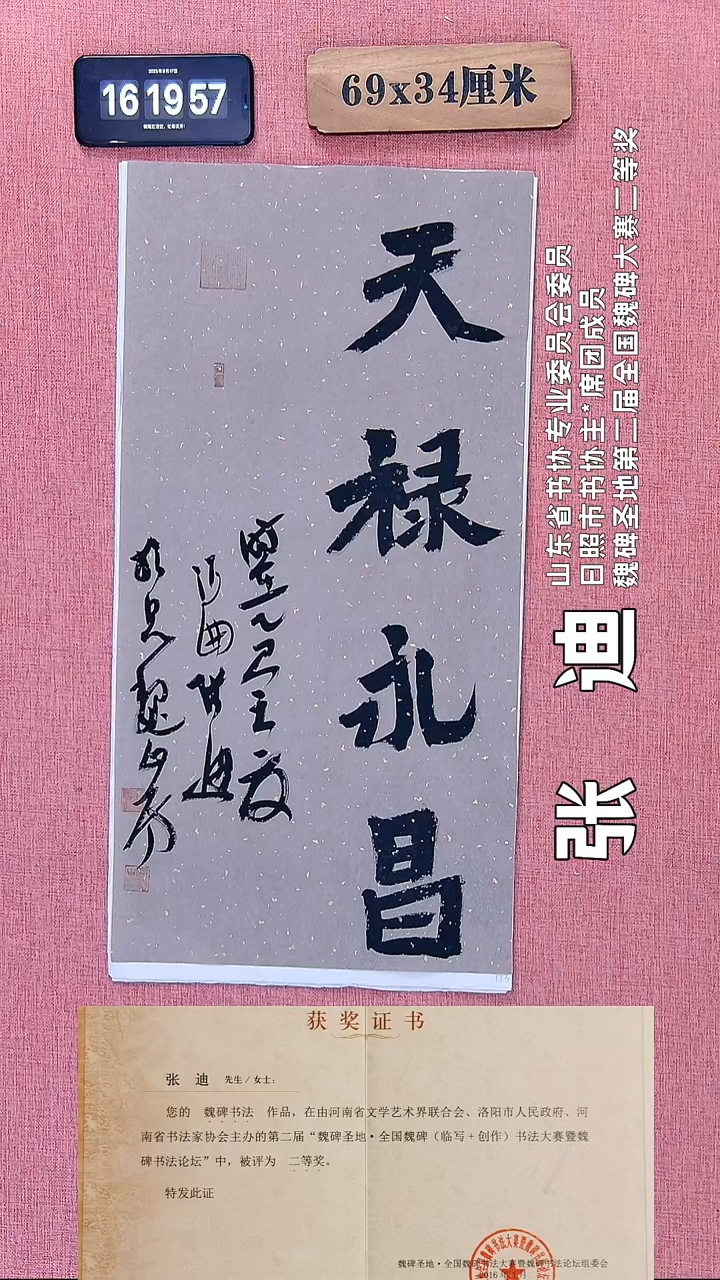 16 19 57
69x34厘米
天禄永昌
山东省书协专业委员会委员
日照市书协主*席团成员
魏碑圣地第二届全国魏碑大赛二等奖
张 迪
获奖证书
张 迪 先生/女士:
您的 魏碑书法 作品，在由河南省文学艺术界联合会、洛阳市人民政府、河
南省书法家协会主办的第二届“魏碑圣地·全国魏碑（临写+创作）书法大赛暨魏
碑书法论坛”中，被评为 二等奖。
特发此证
魏碑圣地·全国魏碑书法大赛暨魏碑书法论坛组委会